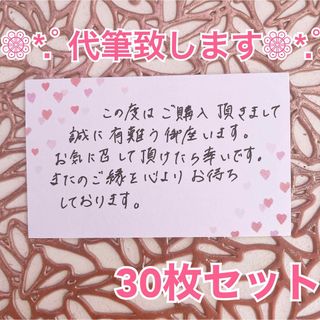 ❁*.ﾟ代筆致します❁*.ﾟ
この度はご購入頂きまして
誠に有難う御座います。
お気に召して頂けたら幸いです。
またのご縁を心よりお待ち
しております。
30枚セット